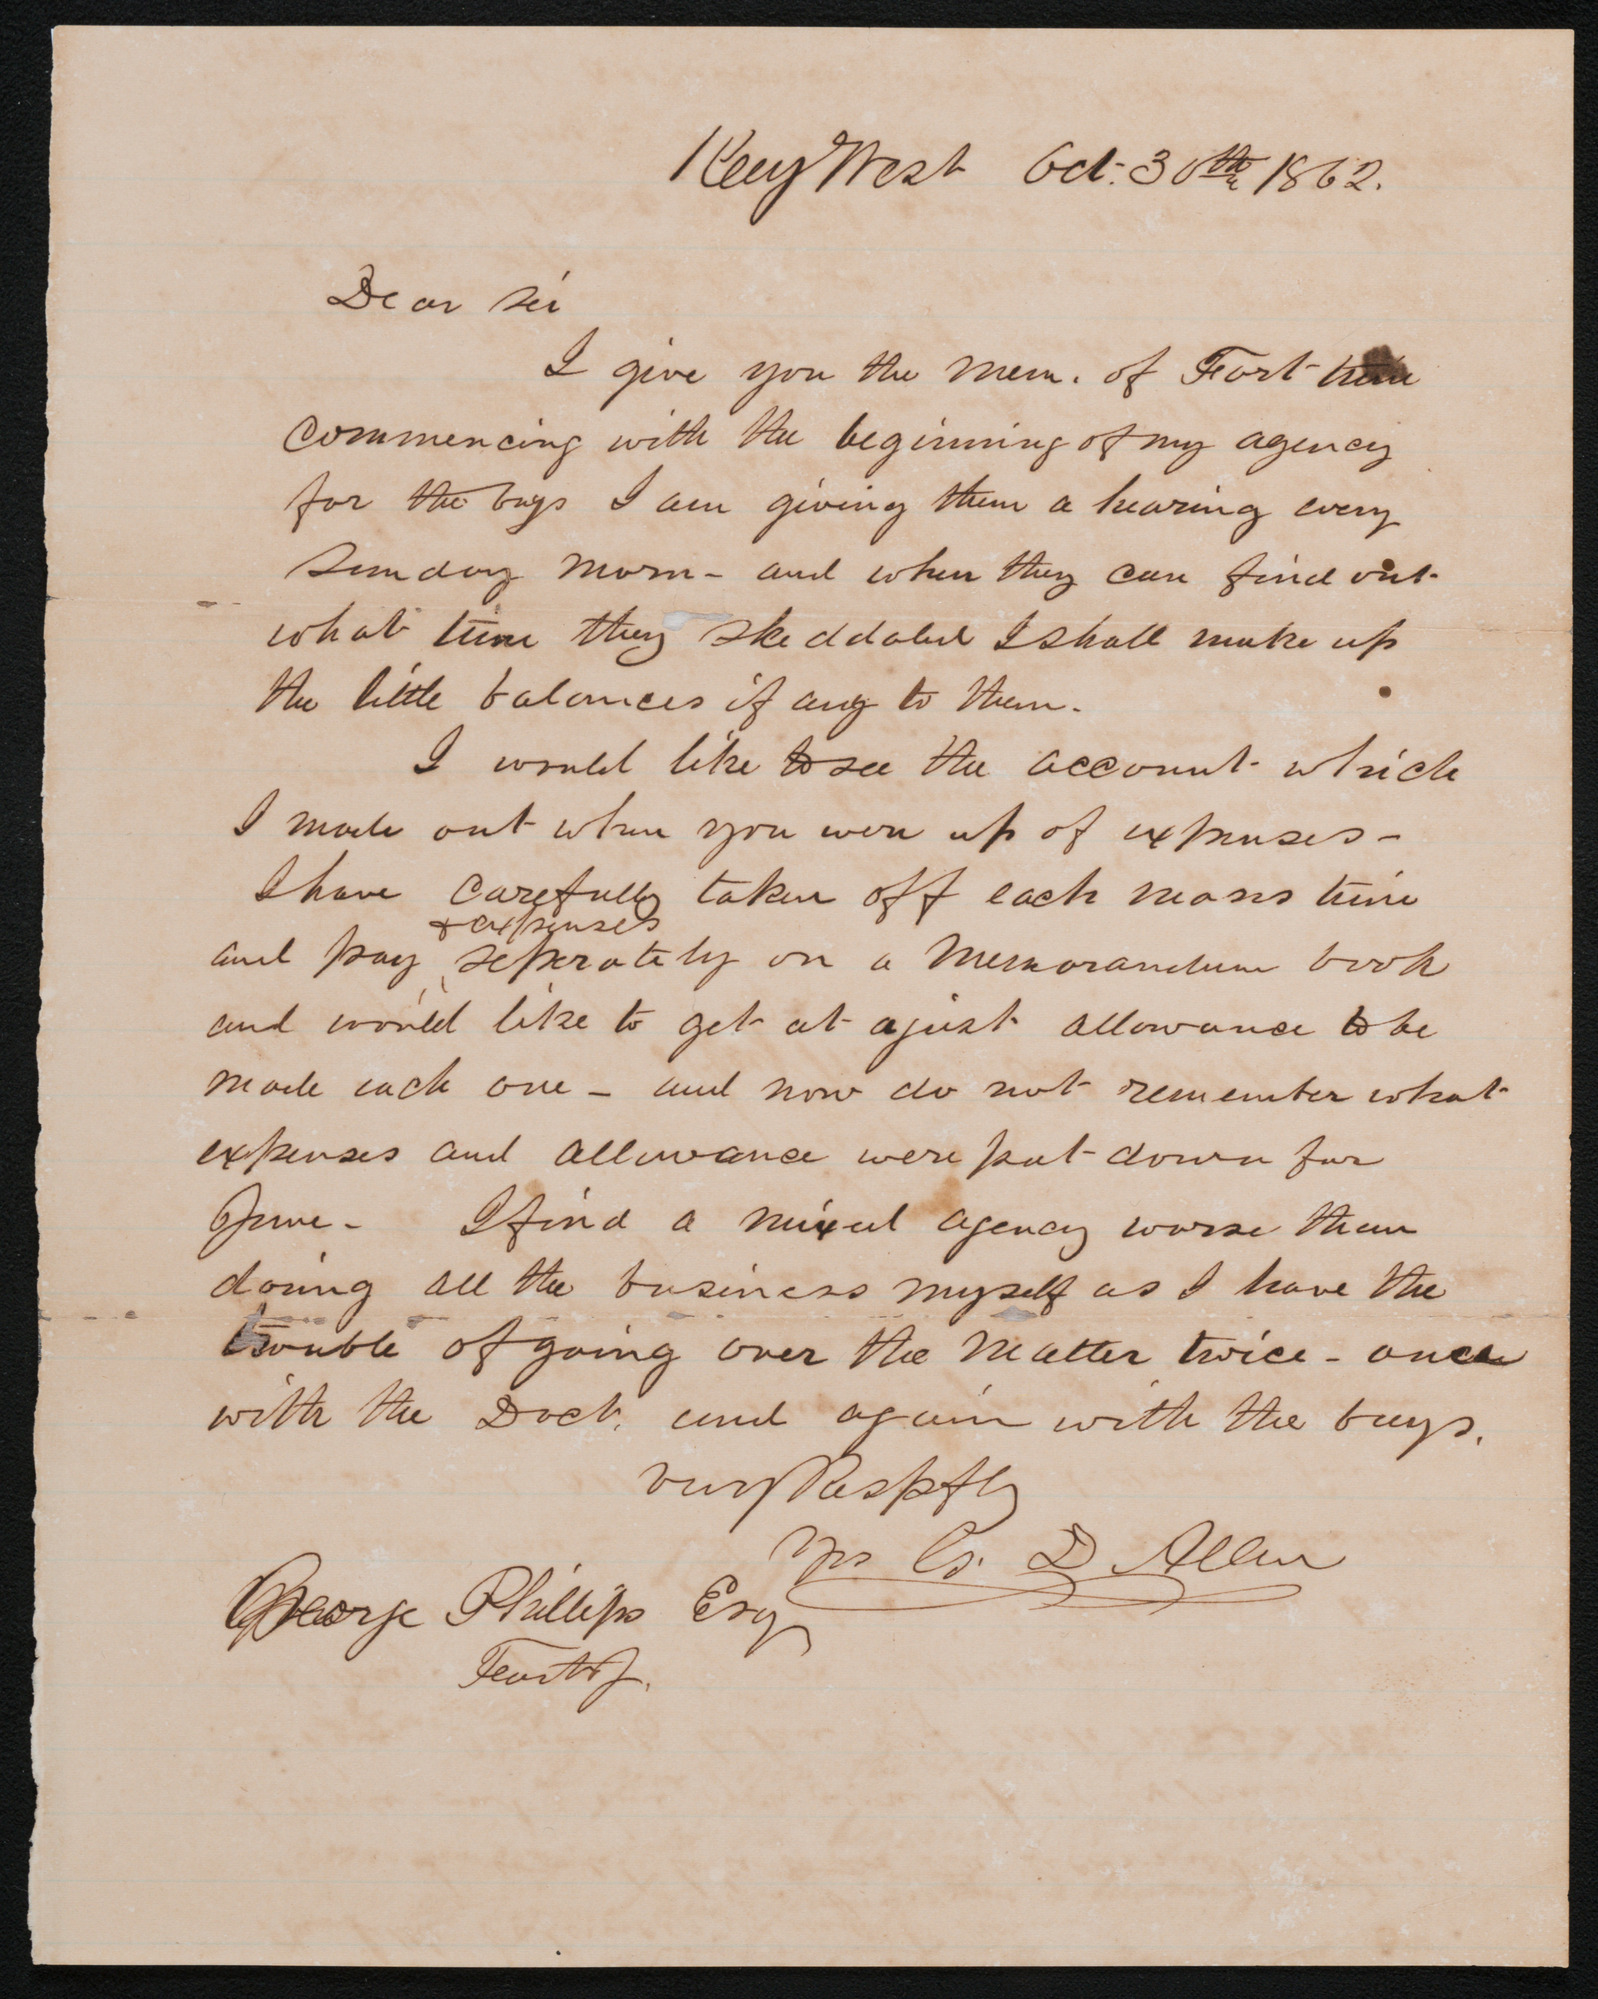 Key West Oct. 30th 1862.
Dear Sir
I give you the mem. of Fort time
commencing with the beginning of my agency
for the boys I am giving them a hearing every
Sunday morn - and when they can find out
what time they skeddaled I shall make up
the little balances if any to them.
I would like to see the account which
I made out when you were up of expenses -
I have carefully taken off each mans time
& expenses
and pay seperately on a Memorandum book
and would like to get at a just allowance to be
made each one - and now do not remember what
expenses and allowance were put down for
June - I find a mixed agency worse than
doing all the business myself as I have the
trouble of going over the matter twice - once
with the Doct. and again with the boys.
Very Respfly
Yrs D Allen
George Phillips Esq
Fort J.